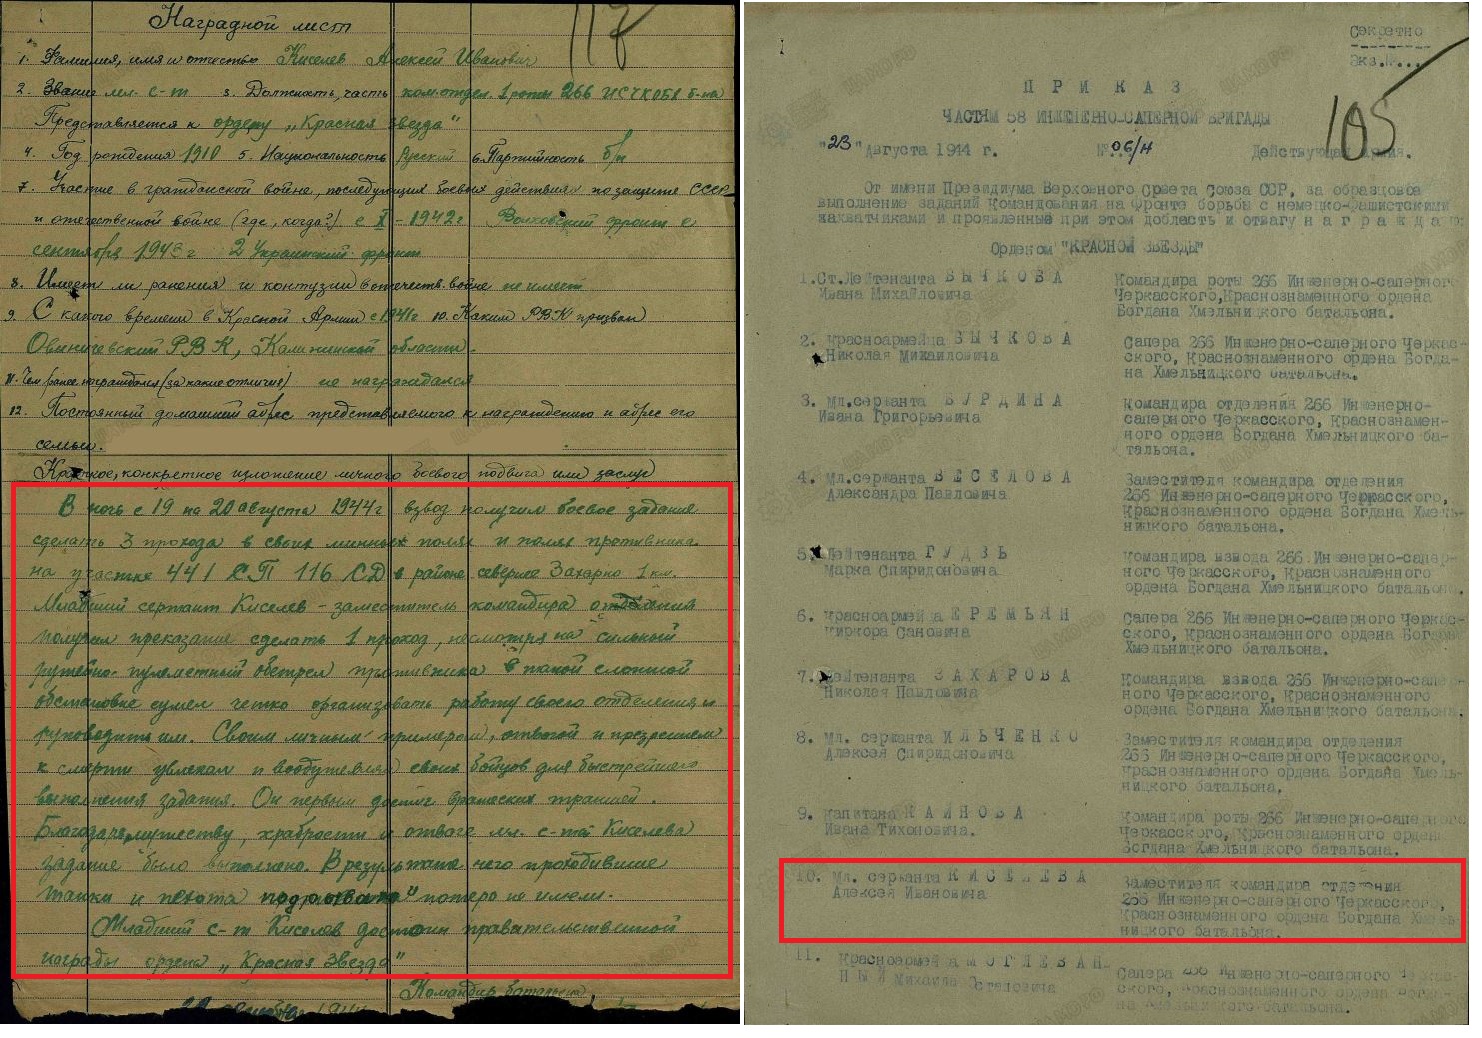 Наградной лист
117
1. Фамилия, имя и отчество Киселев Алексей Иванович
2. Звание мл. с-т 3. Должность, часть ком. отдел. 1 роты 266 ИСЧКОБХ б-на
Представляется к ордеру „Красная звезда"
4. Год рождения 1910 5. Национальность Русский 6. Партийность б/п
7. Участие в гражданской войне, последующих боевых действиях по защите СССР
и отечественной войне (где, когда?) с X - 1942г Волховский фронт с
сентября 1943 г 2 Украинский фронт
8. Имеет ли ранения и контузии в отечеств. войне не имеет
9. С какого времени в Красной Армии с 1941г 10. Каким РВК призван
Овинищевский РВК, Калининской области.
11. Чем ранее награждался (за какие отличия) не награждался
12. Постоянный домашний адрес представляемого к награждению и адрес его
семьи.
Краткое, конкретное изложение личного боевого подвига или заслуг
В ночь с 19 на 20 августа 1944г взвод получил боевое задание
сделать 3 прохода в своих минных полях и полях противника
на участке 441 СП 116 СД в районе севернее Захарно 1 км.
Младший сержант Киселев - заместитель командира отделения
получил приказание сделать 1 проход, несмотря на сильный
ружейно-пулеметный обстрел противника в такой сложной
обстановке сумел четко организовать работу своего отделения и
руководить им. Своим личным примером, отвагой и презрением
к смерти увлекал и воодушевлял своих бойцов для быстрейшего
выполнения задания. Он первым достиг вражеских траншей.
Благодаря мужеству, храбрости и отваге мл. с-та Киселева
задание было выполнено. В результате чего проходившие
танки и пехота потерь не имели.
Младший с-т Киселев достоин правительственной
награды ордена „Красная Звезда"
Командир батальона
Секретно
Экз.№...
П Р И К А З
ЧАСТЯМ 58 ИНЖЕНЕРНО-САПЕРНОЙ БРИГАДЫ
105
"23" Августа 1944 г. №.06/н Действующая Армия.
От имени Президиума Верховного Совета Союза ССР, за образцовое
выполнение заданий Командования на Фронте борьбы с немецко-фашистскими
захватчиками и проявленные при этом доблесть и отвагу н а г р а ж д а ю
Орденом "КРАСНОЙ ЗВЕЗДЫ"
1. Ст.Лейтенанта Б Ы Ч К О В А Командира роты 266 Инженерно-саперного
Ивана Михайловича Черкасского,Краснознаменного ордена
Богдана Хмельницкого батальона.
2. Красноармейца Б Ы Ч К О В А Сапера 266 Инженерно-саперного Черкас-
Николая Михайловича ского, Краснознаменного ордена Богда-
на Хмельницкого батальона.
3. Мл.сержанта Б У Р Д И Н А Командира отделения 266 Инженерно-
Ивана Григорьевича саперного Черкасского, Краснознамен-
ного ордена Богдана Хмельницкого ба-
тальона.
4. Мл.сержанта В Е С Е Л О В А Заместителя командира отделения
Александра Павловича 266 Инженерно-саперного Черкасского,
Краснознаменного ордена Богдана Хмель-
ницкого батальона.
5. Лейтенанта Г У Д З Ь Командира взвода 266 Инженерно-сапер-
Марка Спиридоновича ного Черкасского, Краснознаменного
ордена Богдана Хмельницкого батальона.
6. Красноармейца Е Р Е М Ь Я Н Сапера 266 Инженерно-саперного Черкас-
Киркора Сановича ского, Краснознаменного ордена Богдана
Хмельницкого батальона.
7. Лейтенанта З А Х А Р О В А Командира взвода 266 Инженерно-сапер-
Николая Павловича ного Черкасского, Краснознаменного
ордена Богдана Хмельницкого батальона.
8. Мл. сержанта И Л Ь Ч Е Н К О Заместителя командира отделения
Алексея Спиридоновича 266 Инженерно-саперного Черкасского,
Краснознаменного ордена Богдана Хмель-
ницкого батальона.
9. Капитана К А Й Н О В А Командира роты 266 Инженерно-саперного
Ивана Тихоновича. Черкасского, Краснознаменного ордена
Богдана Хмельницкого батальона.
10. Мл. сержанта К И С Е Л Е В А Заместителя командира отделения
Алексея Ивановича 266 Инженерно-саперного Черкасского,
Краснознаменного ордена Богдана Хмель-
ницкого батальона.
11. Красноармейца
Сапера 266 Инженерно-саперного Черкас-
Н Ы Й Михаила ского, Краснознаменного ордена Богда-
на Хмельницкого батальона.